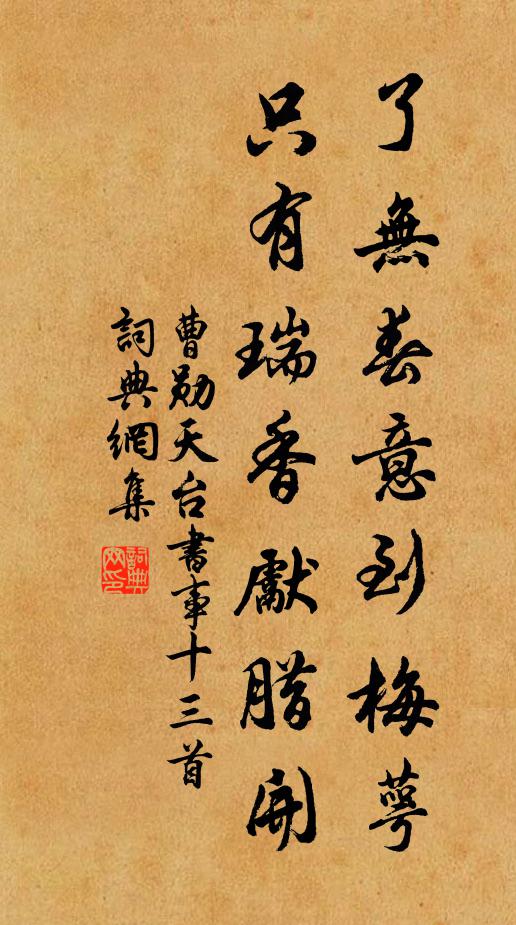 了無春意到梅萼
只有瑞香獻腊開
曹勛天台書事十三首
詞典網集
詞典網印